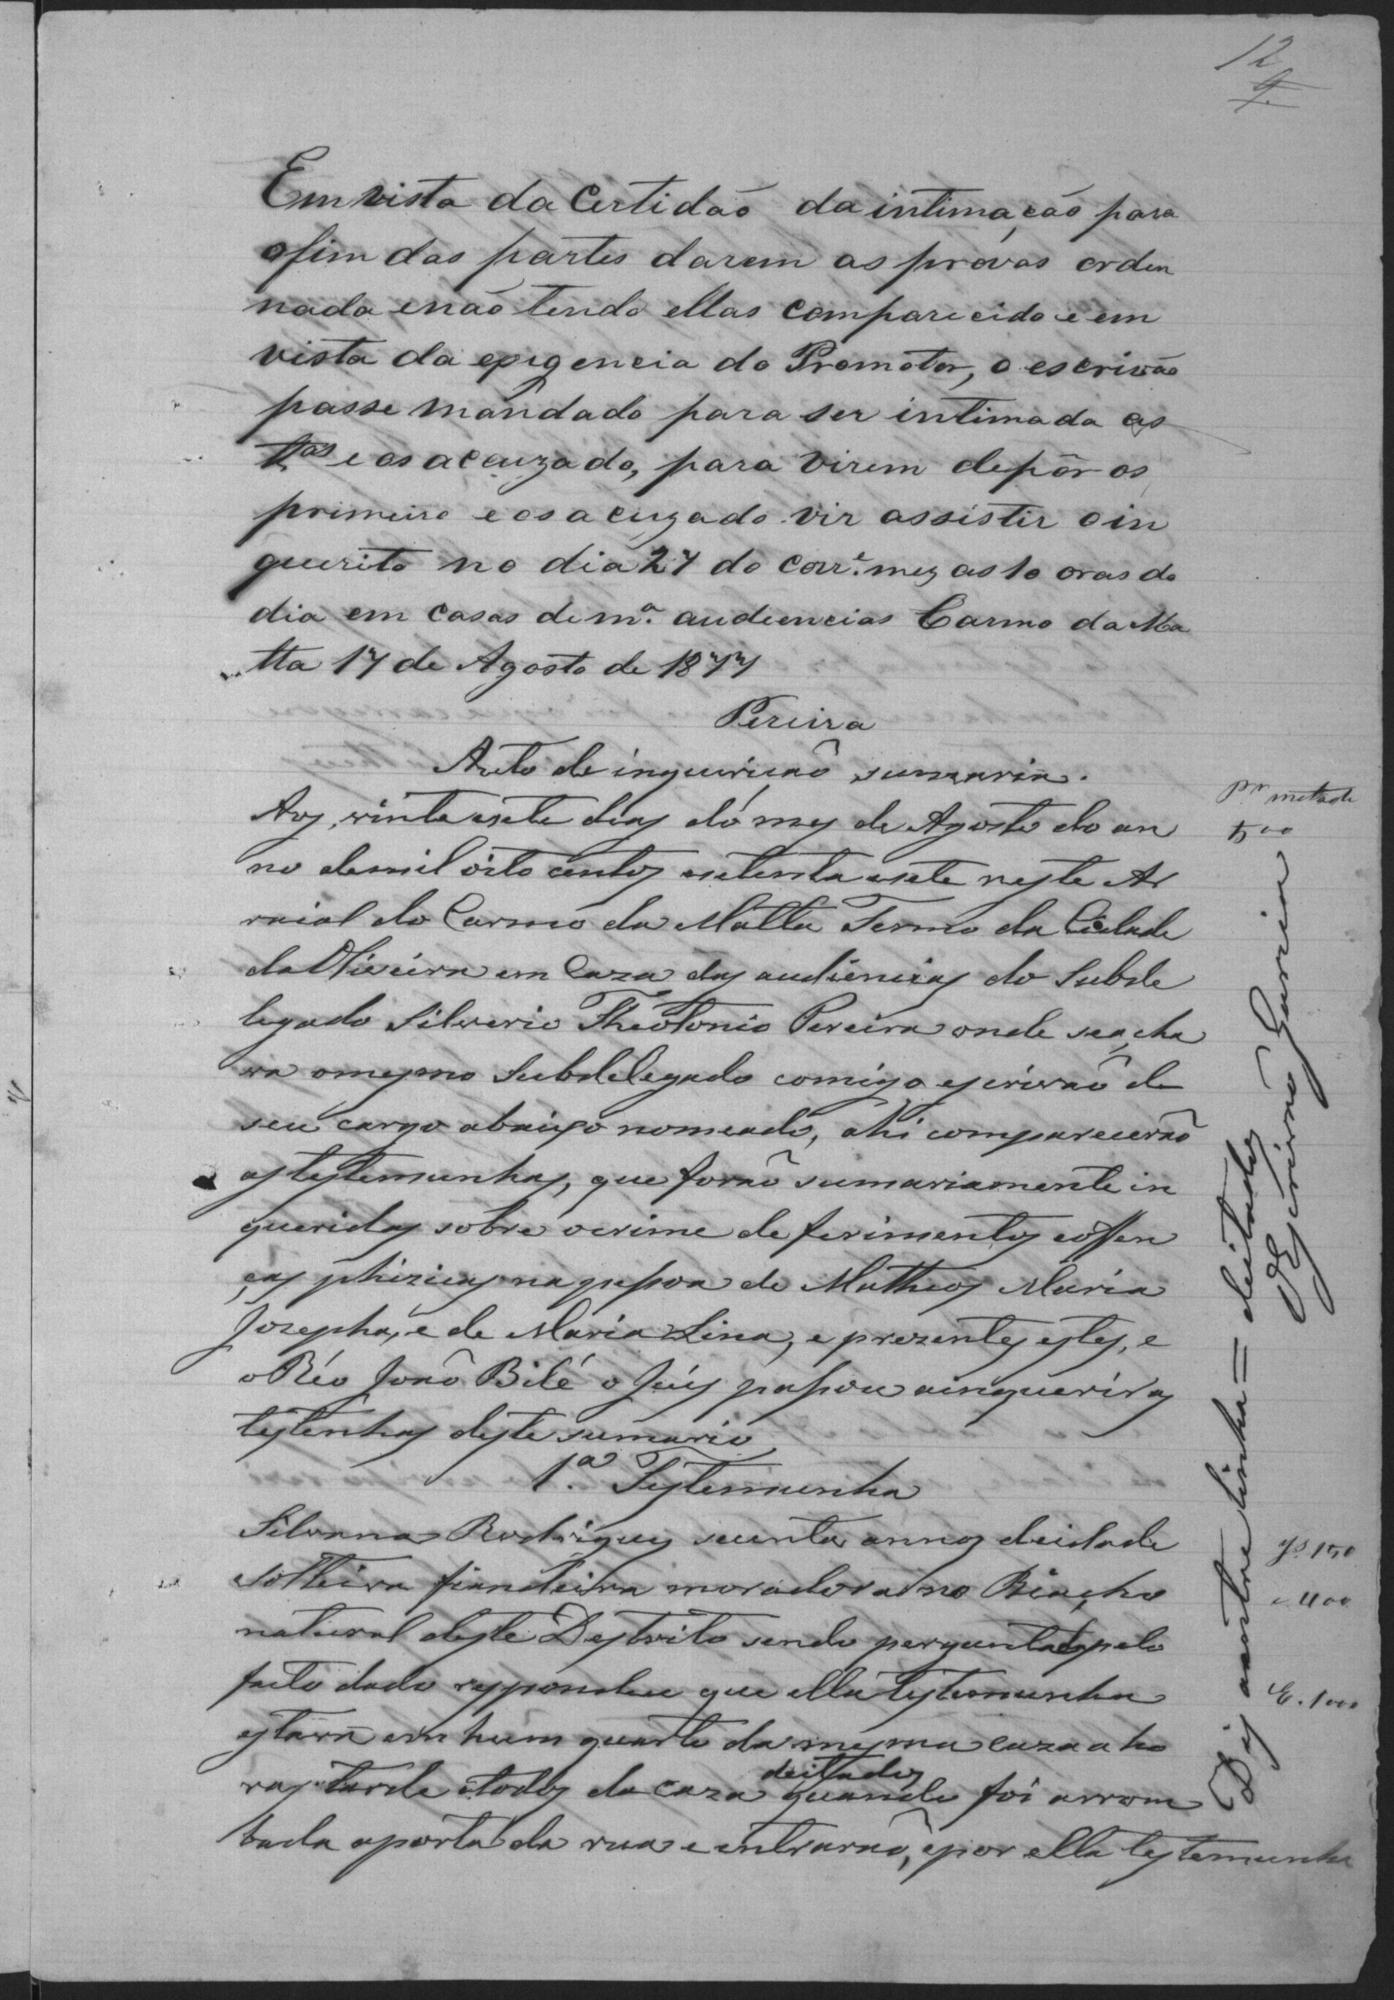 12
Em vista da Certidão da intimação para
o fim das partes darem as provas orden
nada e não tendo ellas comparecido e em
vista da exigencia do Promotor, o escrivão
passe mandado para ser intimada as
t.as e os acuzado, para virem depôr os
primeiro e os acuzado vir assistir o in
querito no dia 27 do corr.e mez as 10 oras do
dia em casas de m.a audiencias Carmo da Ma
tta 17 de Agosto de 1877
Pereira
Auto de inquirição sumaria.
Aos vinte e sete dias do mes de Agosto do an
no de mil oito centos e setenta e sete neste Ar
raial do Carmo da Matta Termo da Cidade
da Oliveira em Caza das audiencias do Subde
legado Silverio Theotonio Pereira onde se acha
va o mesmo Subdelegado comigo escrivaõ de
seu cargo abaixo nomeado, ahi compareceraõ
as testemunhas, que foraõ sumariamente in
queridas sobre o crime de ferimentos e offen
ças phizicas na pessoa de Matheos Maria
Jozepha, e de Maria Lina, e prezentes estes, e
o Réo Joaõ Bilé o Juis passou a inquerir as
testenhas deste sumario
1.a Testemunha
Silvana Rodrigues secenta annos de idade
solteira fiandeira moradora no Riacho
natural deste Destrito sendo perguntada pelo
facto dado respondeu que ella testemunha
estava em hum quarto da mesma caza a ho
ras tarde e todos da caza deitados quando foi arrom
bada a porta da rua e entraraõ, e por ella testemunha
P.r metade
500
Dis a entre linha = deitados
O Escrivaõ Garcia
js. 150
400
E. 1000